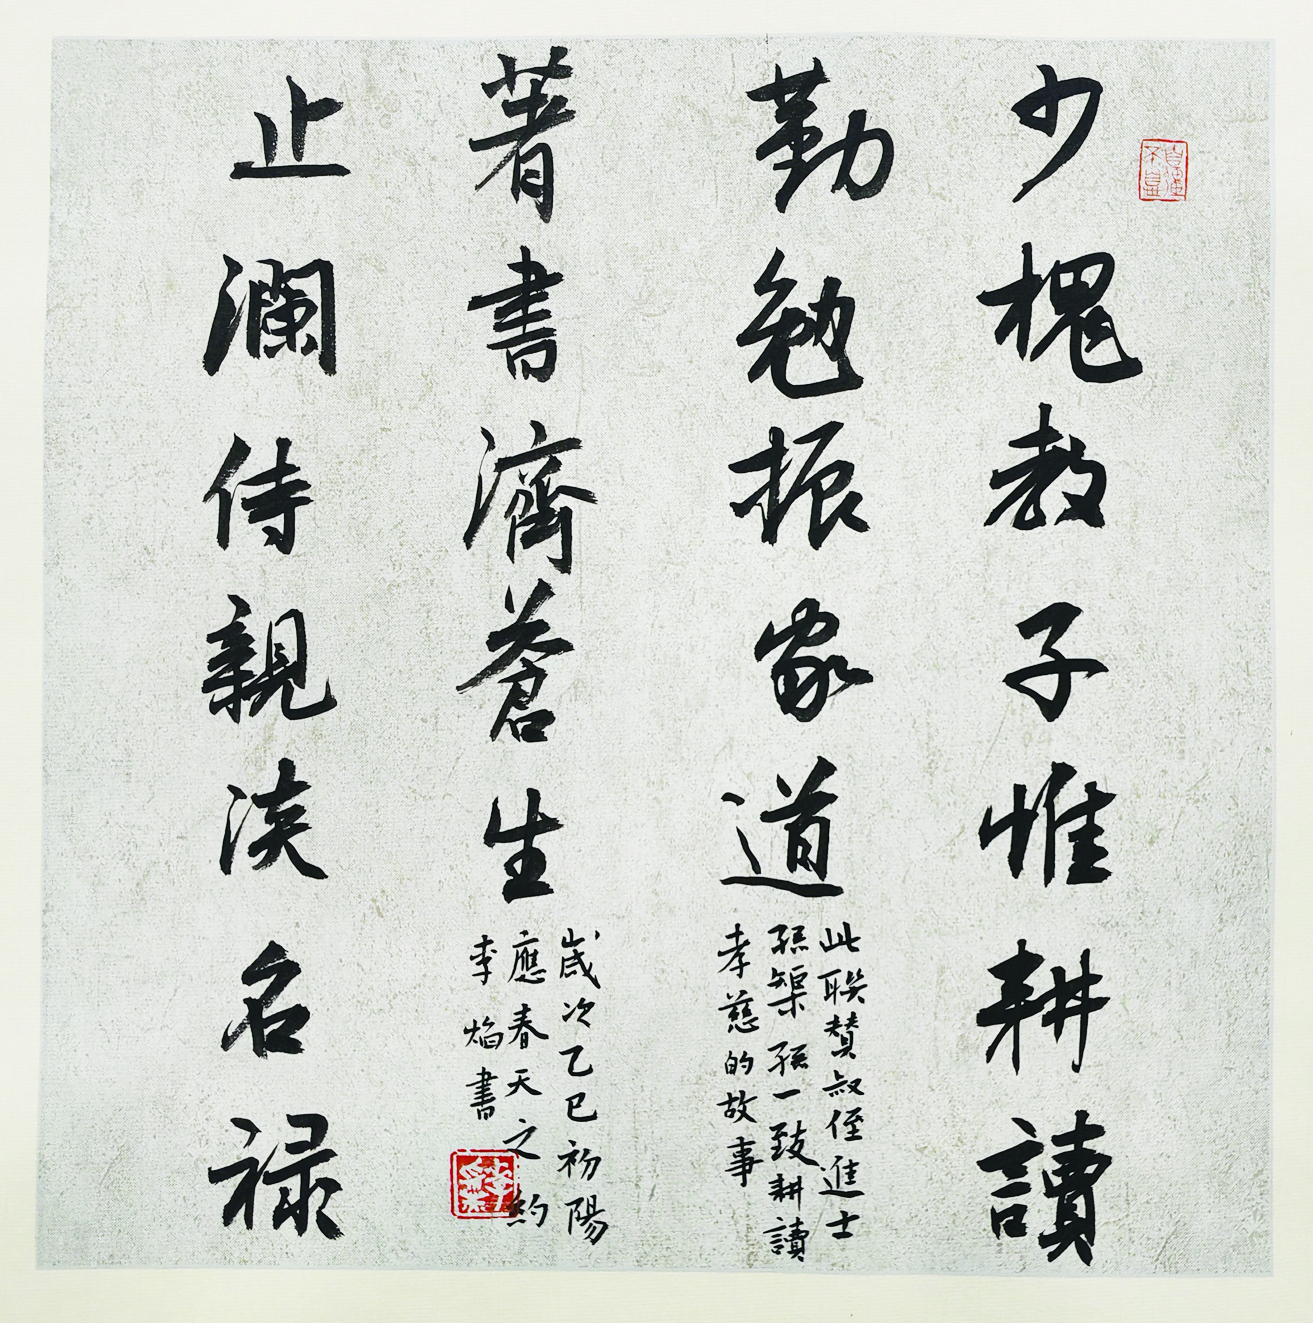 自強不息
少槐教子惟耕讀
勤勉振家道
此聯贊叔侄進士
孫榘孫一致耕讀
孝慈的故事
著書濟蒼生
歲次乙巳初陽
應春天之約
李焰書
止瀾侍親淡名禄